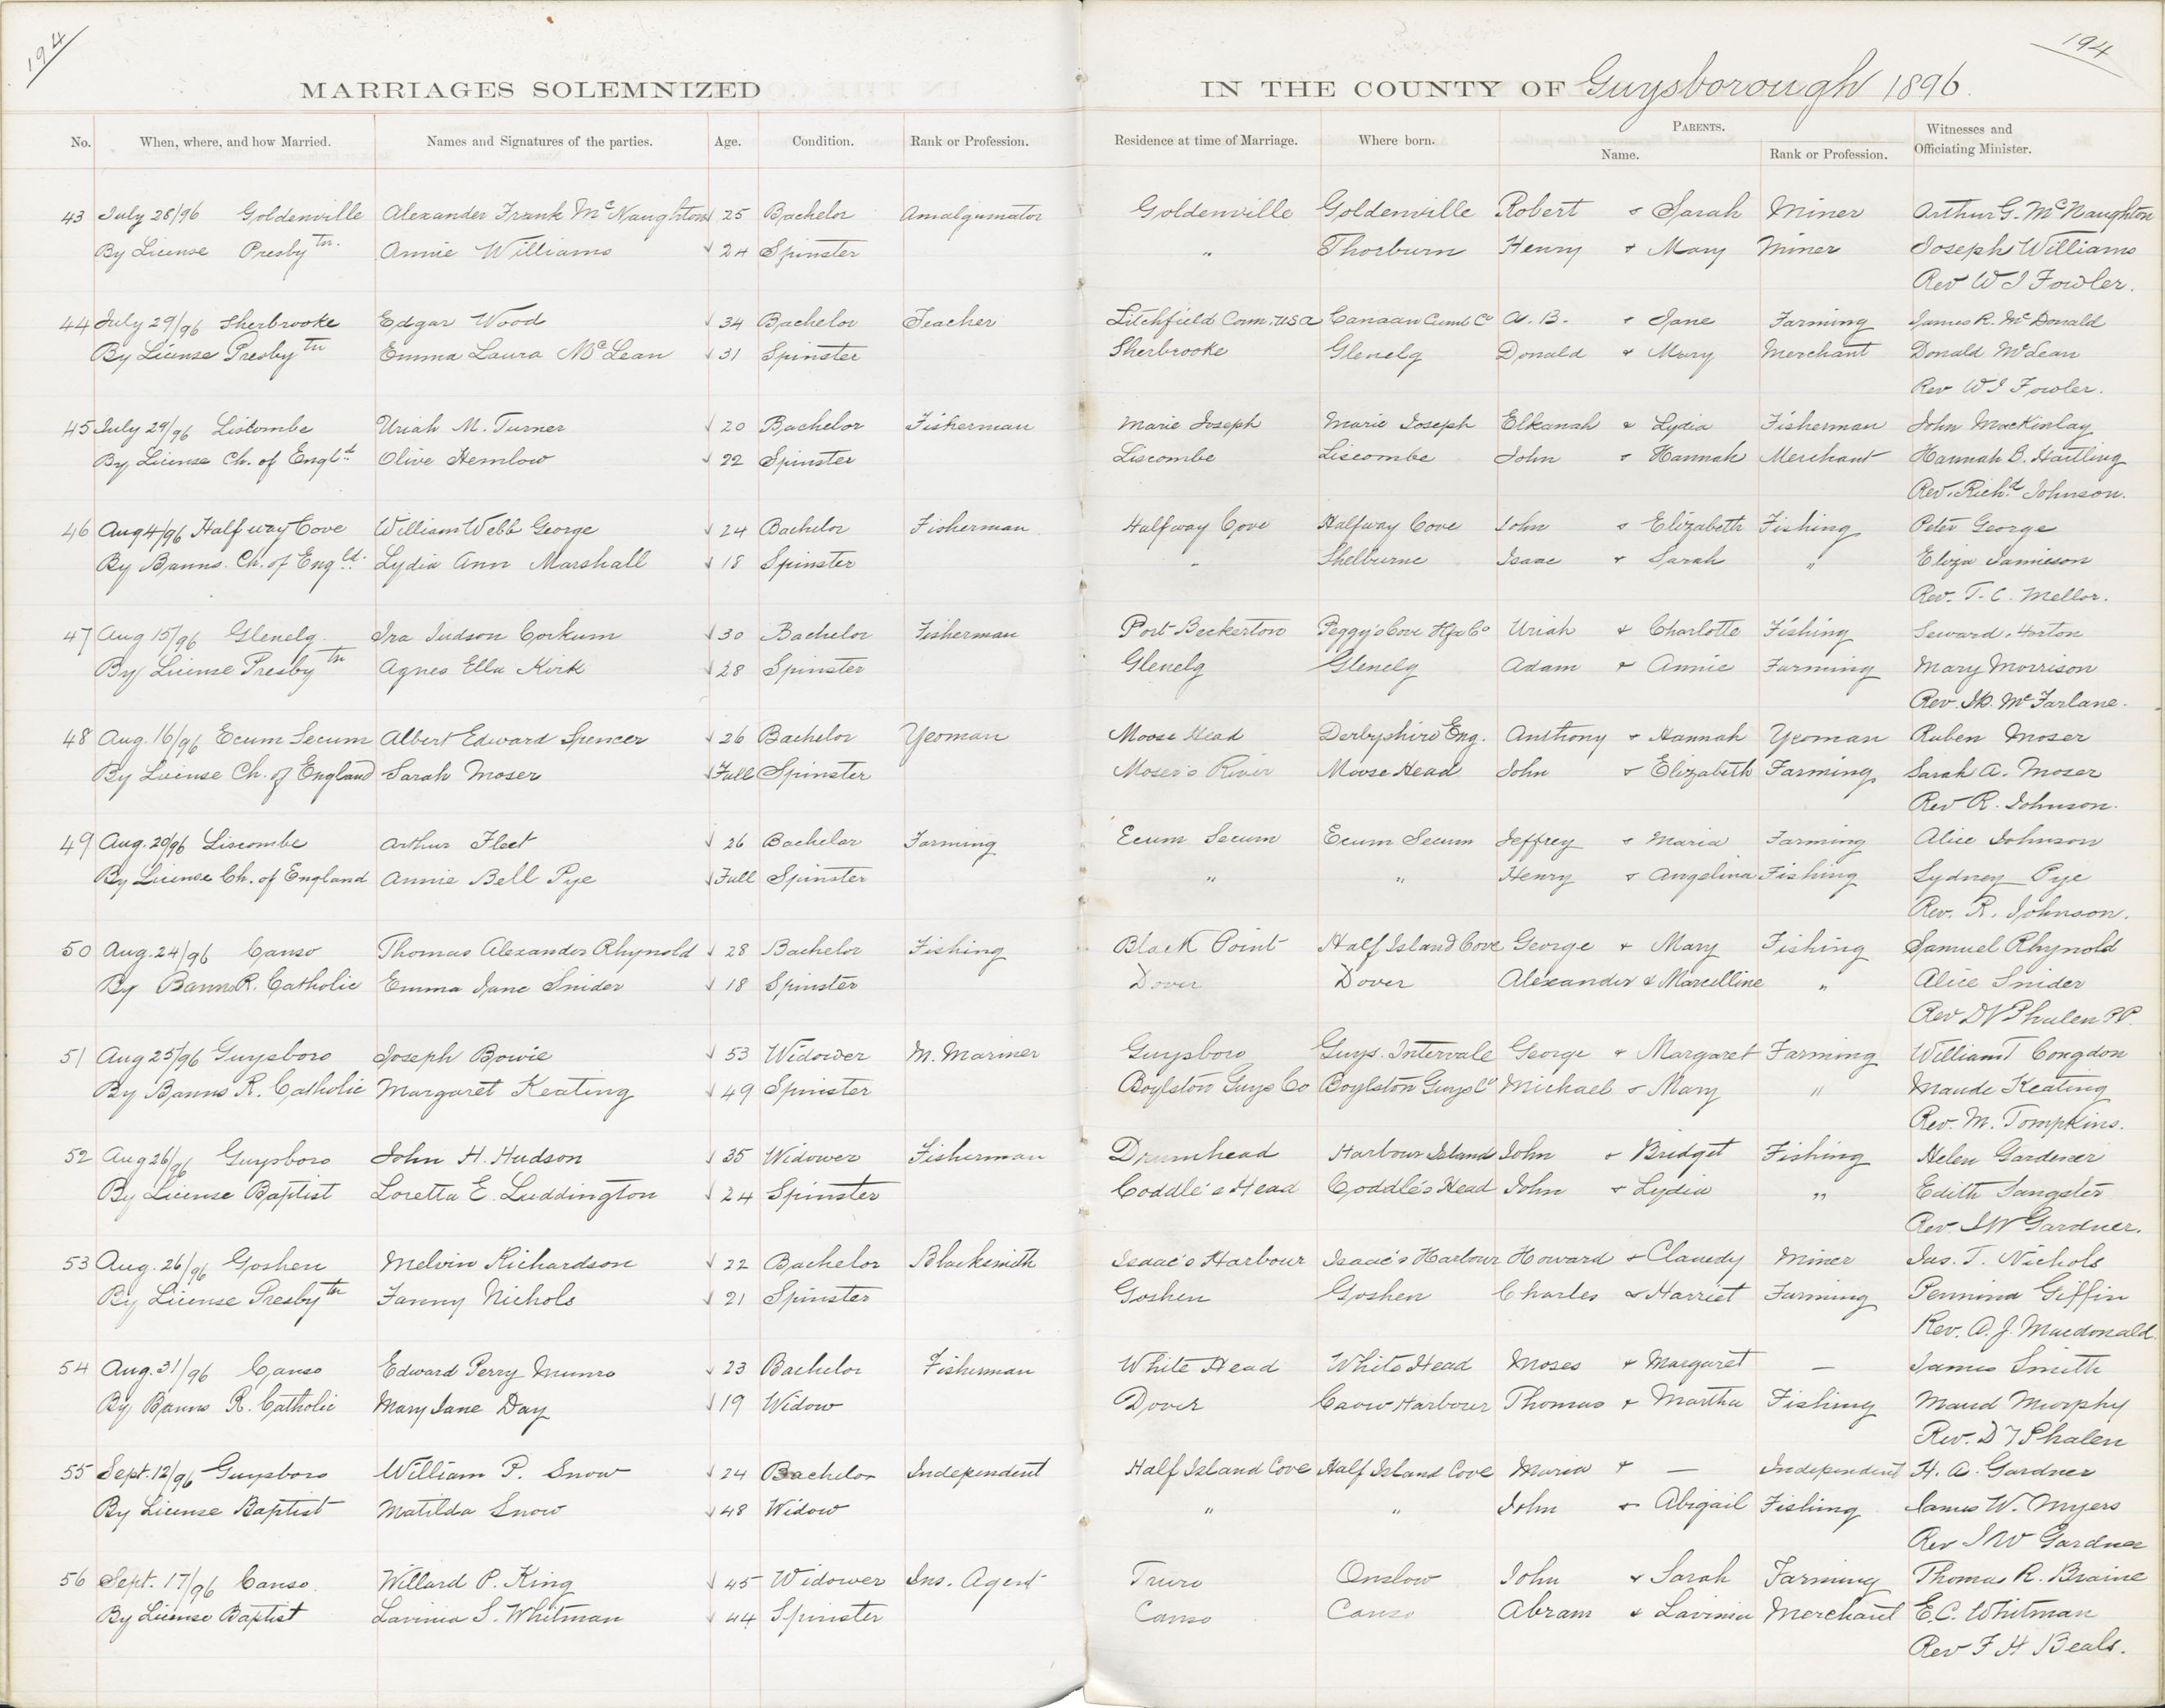 194
194
MARRIAGES SOLEMNIZED IN THE COUNTY OF Guysborough 1896.
No. When, where, and how Married. Names and Signatures of the parties. Age. Condition. Rank or Profession. Residence at time of Marriage. Where born. PARENTS. Name. Rank or Profession. Witnesses and Officiating Minister.
43 July 28/96 Goldenville Alexander Frank McNaughton √ 25 Bachelor Amalgamator Goldenville Goldenville Robert & Sarah Miner Arthur G. McNaughton
By License Presbytn. Annie Williams √ 24 Spinster " Thorburn Henry & Mary Miner Joseph Williams
Rev W I Fowler.
44 July 29/96 Sherbrooke Edgar Wood √ 34 Bachelor Teacher Litchfield Conn. USA Canaan Cumb Co A. B. & Jane Farming James R. McDonald
By License Presbytn Emma Laura McLean √ 31 Spinster Sherbrooke Glenelg Donald & Mary Merchant Donald McLean
Rev W I Fowler.
45 July 29/96 Liscombe Uriah M. Turner √ 20 Bachelor Fisherman Marie Joseph Marie Joseph Elkanah & Lydia Fisherman John MacKinlay
By License Ch. of Engld. Olive Hemlow √ 22 Spinster Liscombe Liscombe John & Hannah Merchant Hannah B. Hartling
Rev. Richd Johnson.
46 Aug 4/96 Half way Cove William Webb George √ 24 Bachelor Fisherman Halfway Cove Halfway Cove John & Elizabeth Fishing Peter George
By Banns. Ch. of Engld. Lydia Ann Marshall √ 18 Spinster " Shelburne Isaac & Sarah " Eliza Jamieson
Rev. T. C. Mellor.
47 Aug 15/96 Glenelg. Ira Judson Corkum √ 30 Bachelor Fisherman Port Beckerton Peggy's Cove Hfx Co Uriah & Charlotte Fishing Seward Horton
By License Presbytn Agnes Ella Kirk √ 28 Spinster Glenelg Glenelg Adam & Annie Farming Mary Morrison
Rev. McFarlane.
48 Aug. 16/96 Ecum Secum Albert Edward Spencer √ 26 Bachelor Yeoman Moose Head Derbyshire Eng. Anthony & Hannah Yeoman Ruben Moser
By License Ch. of England Sarah Moser √ Full Spinster Moser's River Moose Head John & Elizabeth Farming Sarah A. Moser
Rev R. Johnson.
49 Aug. 20/96 Liscombe Arthur Fleet √ 26 Bachelor Farming Ecum Secum Ecum Secum Jeffrey & Maria Farming Alice Johnson
By License Ch. of England Annie Bell Pye √ Full Spinster " " Henry & Angelina Fishing Sydney Pye
Rev. R. Johnson.
50 Aug. 24/96 Canso Thomas Alexander Rhynold √ 28 Bachelor Fishing Black Point Half Island Cove George & Mary Fishing Samuel Rhynold
By Banns R. Catholic Emma Jane Snider √ 18 Spinster Dover Dover Alexander & Marcelline " Alice Snider
Rev D V Phalen PP.
51 Aug 25/96 Guysboro Joseph Bowie √ 53 Widower M. Mariner Guysboro Guys. Intervale George & Margaret Farming William T Congdon
By Banns R. Catholic Margaret Keating √ 49 Spinster Boylston Guys Co Boylston Guys Co Michael & Mary " Maude Keating
Rev. M. Tompkins.
52 Aug 26/96 Guysboro John H. Hudson √ 35 Widower Fisherman Drumhead Harbour Island John & Bridget Fishing Helen Gardener
By License Baptist Loretta E. Luddington √ 24 Spinster Coddle's Head Coddle's Head John & Lydia " Edith Sangster
Rev. I W Gardner.
53 Aug. 26/96 Goshen Melvin Richardson √ 22 Bachelor Blacksmith Isaac's Harbour Isaac's Harbour Howard & Claudy Miner Jas. T. Nichols
By License Presbytn Fanny Nichols √ 21 Spinster Goshen Goshen Charles & Harriet Farming Pennina Giffin
Rev. A. J. Macdonald.
54 Aug. 31/96 Canso Edward Perry Munro √ 23 Bachelor Fisherman White Head White Head Moses & Margaret — James Smith
By Banns R. Catholic Mary Jane Day √ 19 Widow Dover Crow Harbour Thomas & Martha Fishing Maud Murphy
Rev. D V Phalen
55 Sept. 12/96 Guysboro William P. Snow √ 24 Bachelor Independent Half Island Cove Half Island Cove Maria & — Independent H. A. Gardner
By License Baptist Matilda Snow √ 48 Widow " " John & Abigail Fishing James W. Myers
Rev I W Gardner
56 Sept. 17/96 Canso. Willard P. King √ 45 Widower Ins. Agent Truro Onslow John & Sarah Farming Thomas R. Braine
By License Baptist Lavinia S. Whitman √ 44 Spinster Canso Canso Abram & Lavinia Merchant E. C. Whitman
Rev F H Beals.